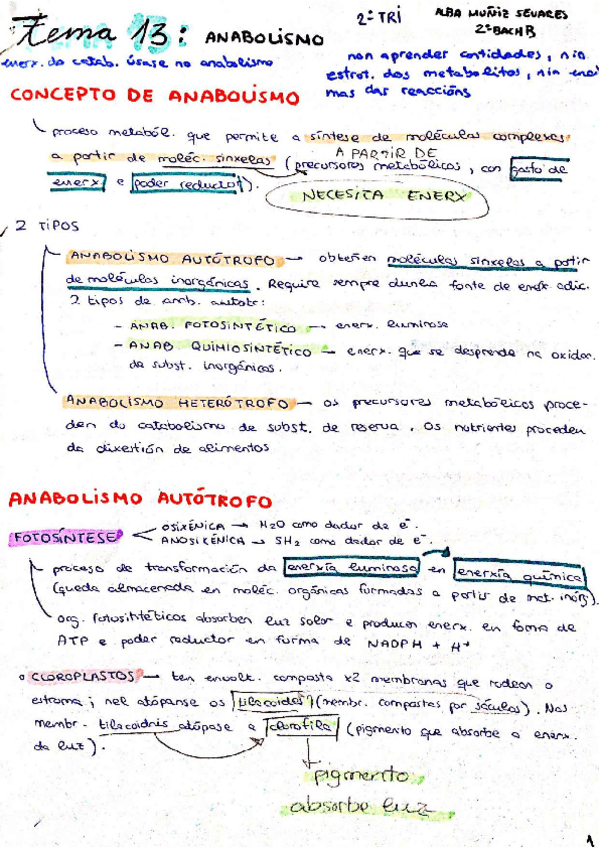 tema 13: ANABOLISMO
2º TRI
ALBA MUÑIZ SEVARES
2º BACH B
enerx. do catab. úsase no anabolismo
non aprender cantidades, nin
estrut. dos metabolitos, nin enci
mas das reaccións
CONCEPTO DE ANABOLISMO
proceso metaból. que permite a síntese de moléculas complexas
a partir de moléc. sinxelas (precursores metabólicos), con gasto de
A PARTIR DE
enerx e poder redutor).
NECESITA ENERX
2 TIPOS
ANABOLISMO AUTÓTROFO → obteñen moléculas sinxelas a partir
de moléculas inorgánicas. Require sempre dunha fonte de enerx adic.
2 tipos de anb. autótr:
- ANAB. FOTOSINTÉTICO → enerx. luminosa
- ANAB QUIMIOSINTÉTICO → enerx. que se desprende na oxidac.
da subst. inorgánicas.
ANABOLISMO HETERÓTROFO → os precursores metabólicos proce-
den do catabolismo de subst. de reserva. Os nutrientes proceden
da dixestión de alimentos
ANABOLISMO AUTÓTROFO
FOTOSÍNTESE
OSIXÉNICA → H2O como dador de e-.
ANOSIXÉNICA → SH2 como dador de e-.
proceso de transformación da enerxía luminosa en enerxía química
(queda almacenada en moléc. orgánicas formadas a partir de mat. inór).
org. fotosintéticos absorben luz solar e producen enerx. en forma de
ATP e poder redutor en forma de NADPH + H+
CLOROPLASTOS → ten envolt. composta x2 membranas que rodean o
estroma; nel atópanse os tilacoides (membr. compostas por sáculos). Nas
membr. tilacoidais atópase a clorofila (pigmento que absorbe a enerx.
da luz).
pigmento
absorbe luz
1